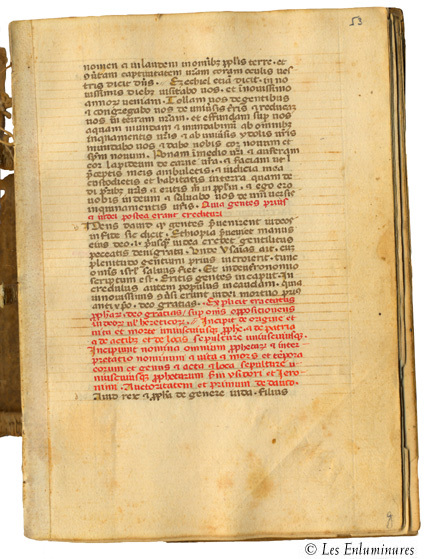 53
nomen et in laudem in omnibus pplis terre. et
captivitatem vram coram oculis ves
tris dicit dns. Ezechiel etia dicit. in no
vissimis diebz visitabo vos. et in novissimo
annorz veniam. Tollam vos de gentibus
et congregabo vos de univsis tris et reducam
vos in terram vram. et effundam sup vos
aquam mundam et mundabimi ab omnibz
inquinamentis vris et ab univsis ydolis vris
mundabo vos et dabo vobis cor novum et
spm novum. Ponam in medio vri et auferam
cor lapideum de carne vra et faciam ut i
pceptis meis ambuletis. et iudicia mea
custodietis et habitatis in terra quam de
di pribz vris et eritis m in pplm. et ego ero
vobis in deum et salvabo vos de univsis
inquinamentis vris. Quia gentes prius
et iudei postea erant credituri
Deus david qd gentes pvenirent iudeos
in fide sic dicit. Ethiopia pveniet manus
eius deo. i. pusqz iudea credet gentilitas
peccatis denigram. Unde Ysaias ait. cu
plenitudo gentium prius introierit. tunc
omis isrl salvus fiet. Et in deuteronomio
scriptum est. Eritis gentes in caput. in
credulus autem populus in caudam. Quia
in novissimis
antixpo. deo gratias. Explicit tractatus
pphar. deo gratias / sup omis oppositionens
iudeor vl hereticorz. Incipit de origine et
vita et morte uniuscuiusqz pphe. et de patria
et de actibz et de locis sepulture uniuscuiusqz
Incipiunt nomina omnium pphetarz et inter
pretatio nominum et vita et mors et tepora
eorum et genus et acta et loca sepulture u
niuscuiusqz pphetarum sm ysidori et Jero
nimi. Auctoritatem et primum de david.
Avid rex et ppha de genere iuda. filius
© Les Enluminures